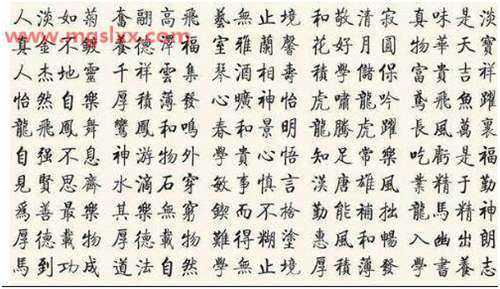 www.mgslxx.com
人淡如菊 奮翮高飛 藝無止境 和敬清寂 真味是淡
真金不 養德澤福 室雅蘭馨 花好月圓 物華天寶
人杰地靈 千祥雲集 琴酒壽 積學儲保 富貴吉祥
怡然自樂 厚積薄發 心曠神怡 虎嘯龍吟 鳶飛魚躍
龍飛鳳舞 鸞鳳和鳴 春和景明 龍騰虎躍 長風萬裏
自强不息 神游物外 學貴心悟 知足常樂 吃虧是福
見賢思齊 水滴石穿 敏事慎言 漢唐雄風 業精于勤
爲善最樂 其樂無窮 鍥而不捨 勤能補拙 龍馬精神
厚德載物 厚德載物 難得糊塗 惠風和暢 入幽出朗
馬到功成 道法自然 學無止境 厚積薄發 學書養志